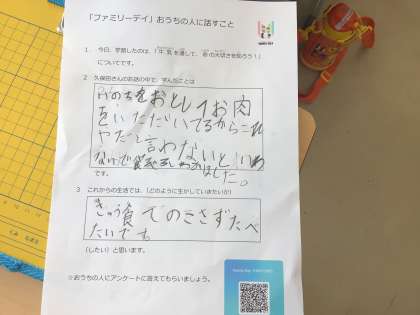 「ファミリーデイ」おうちの人に話すこと
1．今日、学習したのは、「牛乳を通して、命の大切さを知ろう！」
についてです。
2 久保田さんのお話の中で、学んだことは
いのちをおとしてお肉
をいただいてるからこれ
やだと言わないといめ
ないで
ました。
です。
3 これからの生活では、（どのように生かしていきたいか）
きゅう食でのこさずたべ
たいです
（したい）と思います。
※おうちの人にアンケートに答えてもらいましょう。